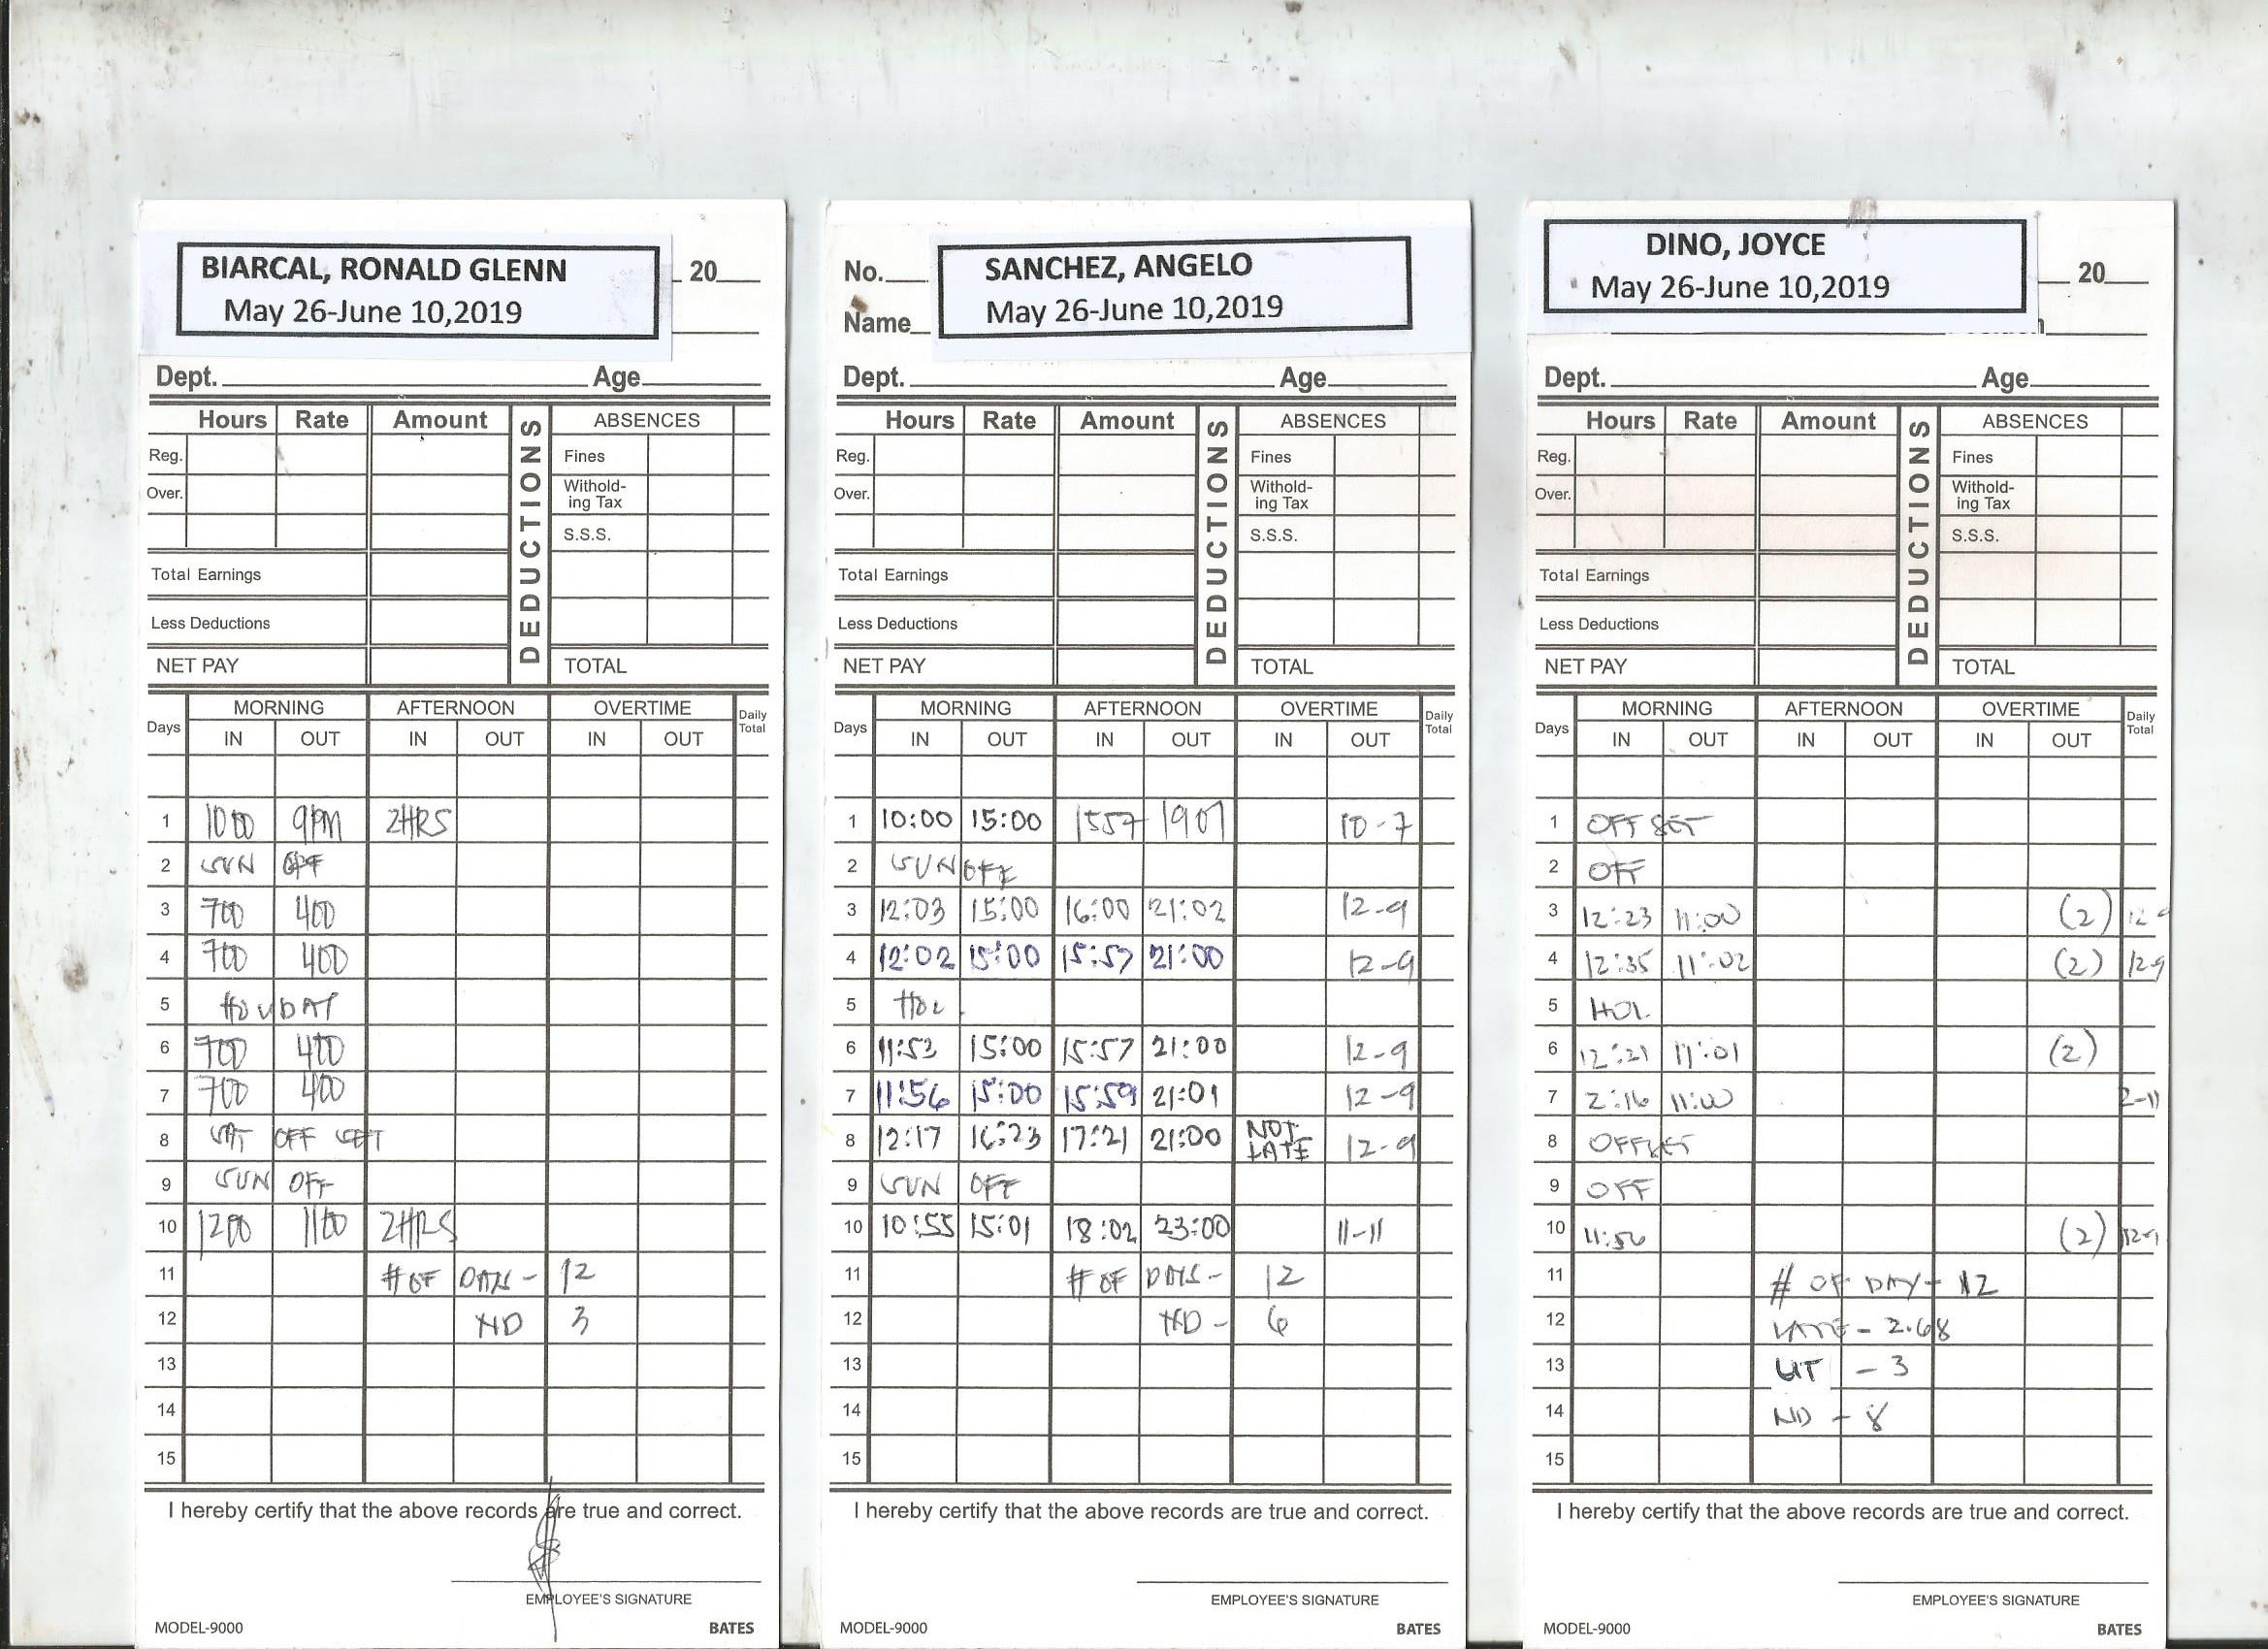 BIARCAL, RONALD GLENN
May 26-June 10,2019
20
Dept. Age
Hours Rate Amount DEDUCTIONS ABSENCES
Reg. Fines
Over. Withold-
ing Tax
S.S.S.
Total Earnings
Less Deductions
NET PAY TOTAL
Days MORNING AFTERNOON OVERTIME Daily Total
IN OUT IN OUT IN OUT
1 1000 9PM 2HRS
2 SUN OFF
3 700 400
4 700 400
5 HOLIDAY
6 700 400
7 700 400
8 SAT OFF SET
9 SUN OFF
10 1200 1100 2HRS
11 # OF DAYS - 12
12 ND 3
13
14
15
I hereby certify that the above records are true and correct.
EMPLOYEE'S SIGNATURE
MODEL-9000 BATES
No. SANCHEZ, ANGELO
May 26-June 10,2019
Name
Dept. Age
Hours Rate Amount DEDUCTIONS ABSENCES
Reg. Fines
Over. Withold-
ing Tax
S.S.S.
Total Earnings
Less Deductions
NET PAY TOTAL
Days MORNING AFTERNOON OVERTIME Daily Total
IN OUT IN OUT IN OUT
1 10:00 15:00 1557 1907 10-7
2 SUN OFF
3 12:03 15:00 16:00 21:02 12-9
4 12:02 15:00 15:57 21:00 12-9
5 HOL.
6 11:53 15:00 15:57 21:00 12-9
7 11:56 15:00 15:59 21:01 12-9
8 12:17 16:23 17:21 21:00 NOT LATE 12-9
9 SUN OFF
10 10:55 15:01 18:02 23:00 11-11
11 # OF DAYS - 12
12 ND - 6
13
14
15
I hereby certify that the above records are true and correct.
EMPLOYEE'S SIGNATURE
MODEL-9000 BATES
DINO, JOYCE
May 26-June 10,2019
20
Dept. Age
Hours Rate Amount DEDUCTIONS ABSENCES
Reg. Fines
Over. Withold-
ing Tax
S.S.S.
Total Earnings
Less Deductions
NET PAY TOTAL
Days MORNING AFTERNOON OVERTIME Daily Total
IN OUT IN OUT IN OUT
1 OFF SET
2 OFF
3 12:23 11:00 (2) 12-9
4 12:35 11:02 (2) 12-9
5 HOL.
6 12:21 11:01 (2)
7 2:16 11:00 2-11
8 OFFSET
9 OFF
10 11:56 (2) 12-9
11 # OF DAY - 12
12 LATE - 2.68
13 UT - 3
14 ND - 8
15
I hereby certify that the above records are true and correct.
EMPLOYEE'S SIGNATURE
MODEL-9000 BATES